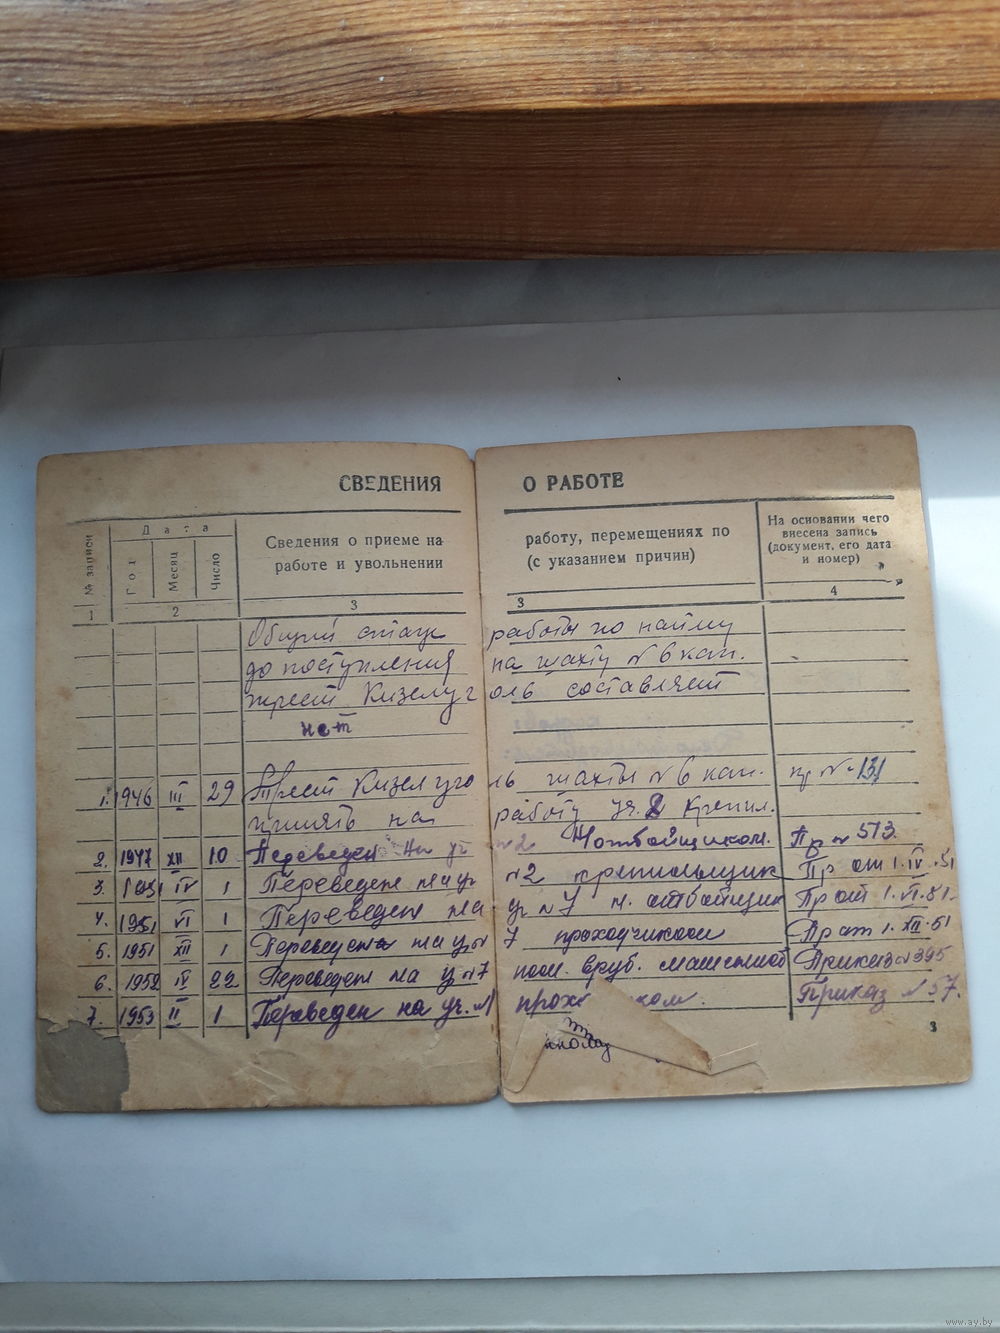 СВЕДЕНИЯ О РАБОТЕ
№ записи
Дата
Год
Месяц
Число
Сведения о приеме на работу, перемещениях по
работе и увольнении (с указанием причин)
На основании чего
внесена запись
(документ, его дата
и номер)
1 2 3 3 4
Общий стаж работы по найму
до поступления на шахту №6 кап.
трест Кизелуголь составляет
нет
1. 1946 III 29 Трест Кизелуголь шахты №6 кап. пр № 131
принят на работу уч. 2 Крепил.
2. 1947 XII 10 Переведен на уч №2 Пр № 513
3. 1951 IV 1 Переведен на уч №2 крепильщик Пр от 1.IV.51
4. 1951 VI 1 Переведен на уч №7 Пр от 1.VI.51.
5. 1951 XII 1 Переведен на уч № 7 проходчиком Пр от 1.XII.51
6. 1952 IV 22 Переведен на уч №7 пом. вруб. машиниста Приказ №395
7. 1953 II 1 Переведен на уч. №1 Приказ №57.
3
www.ay.by